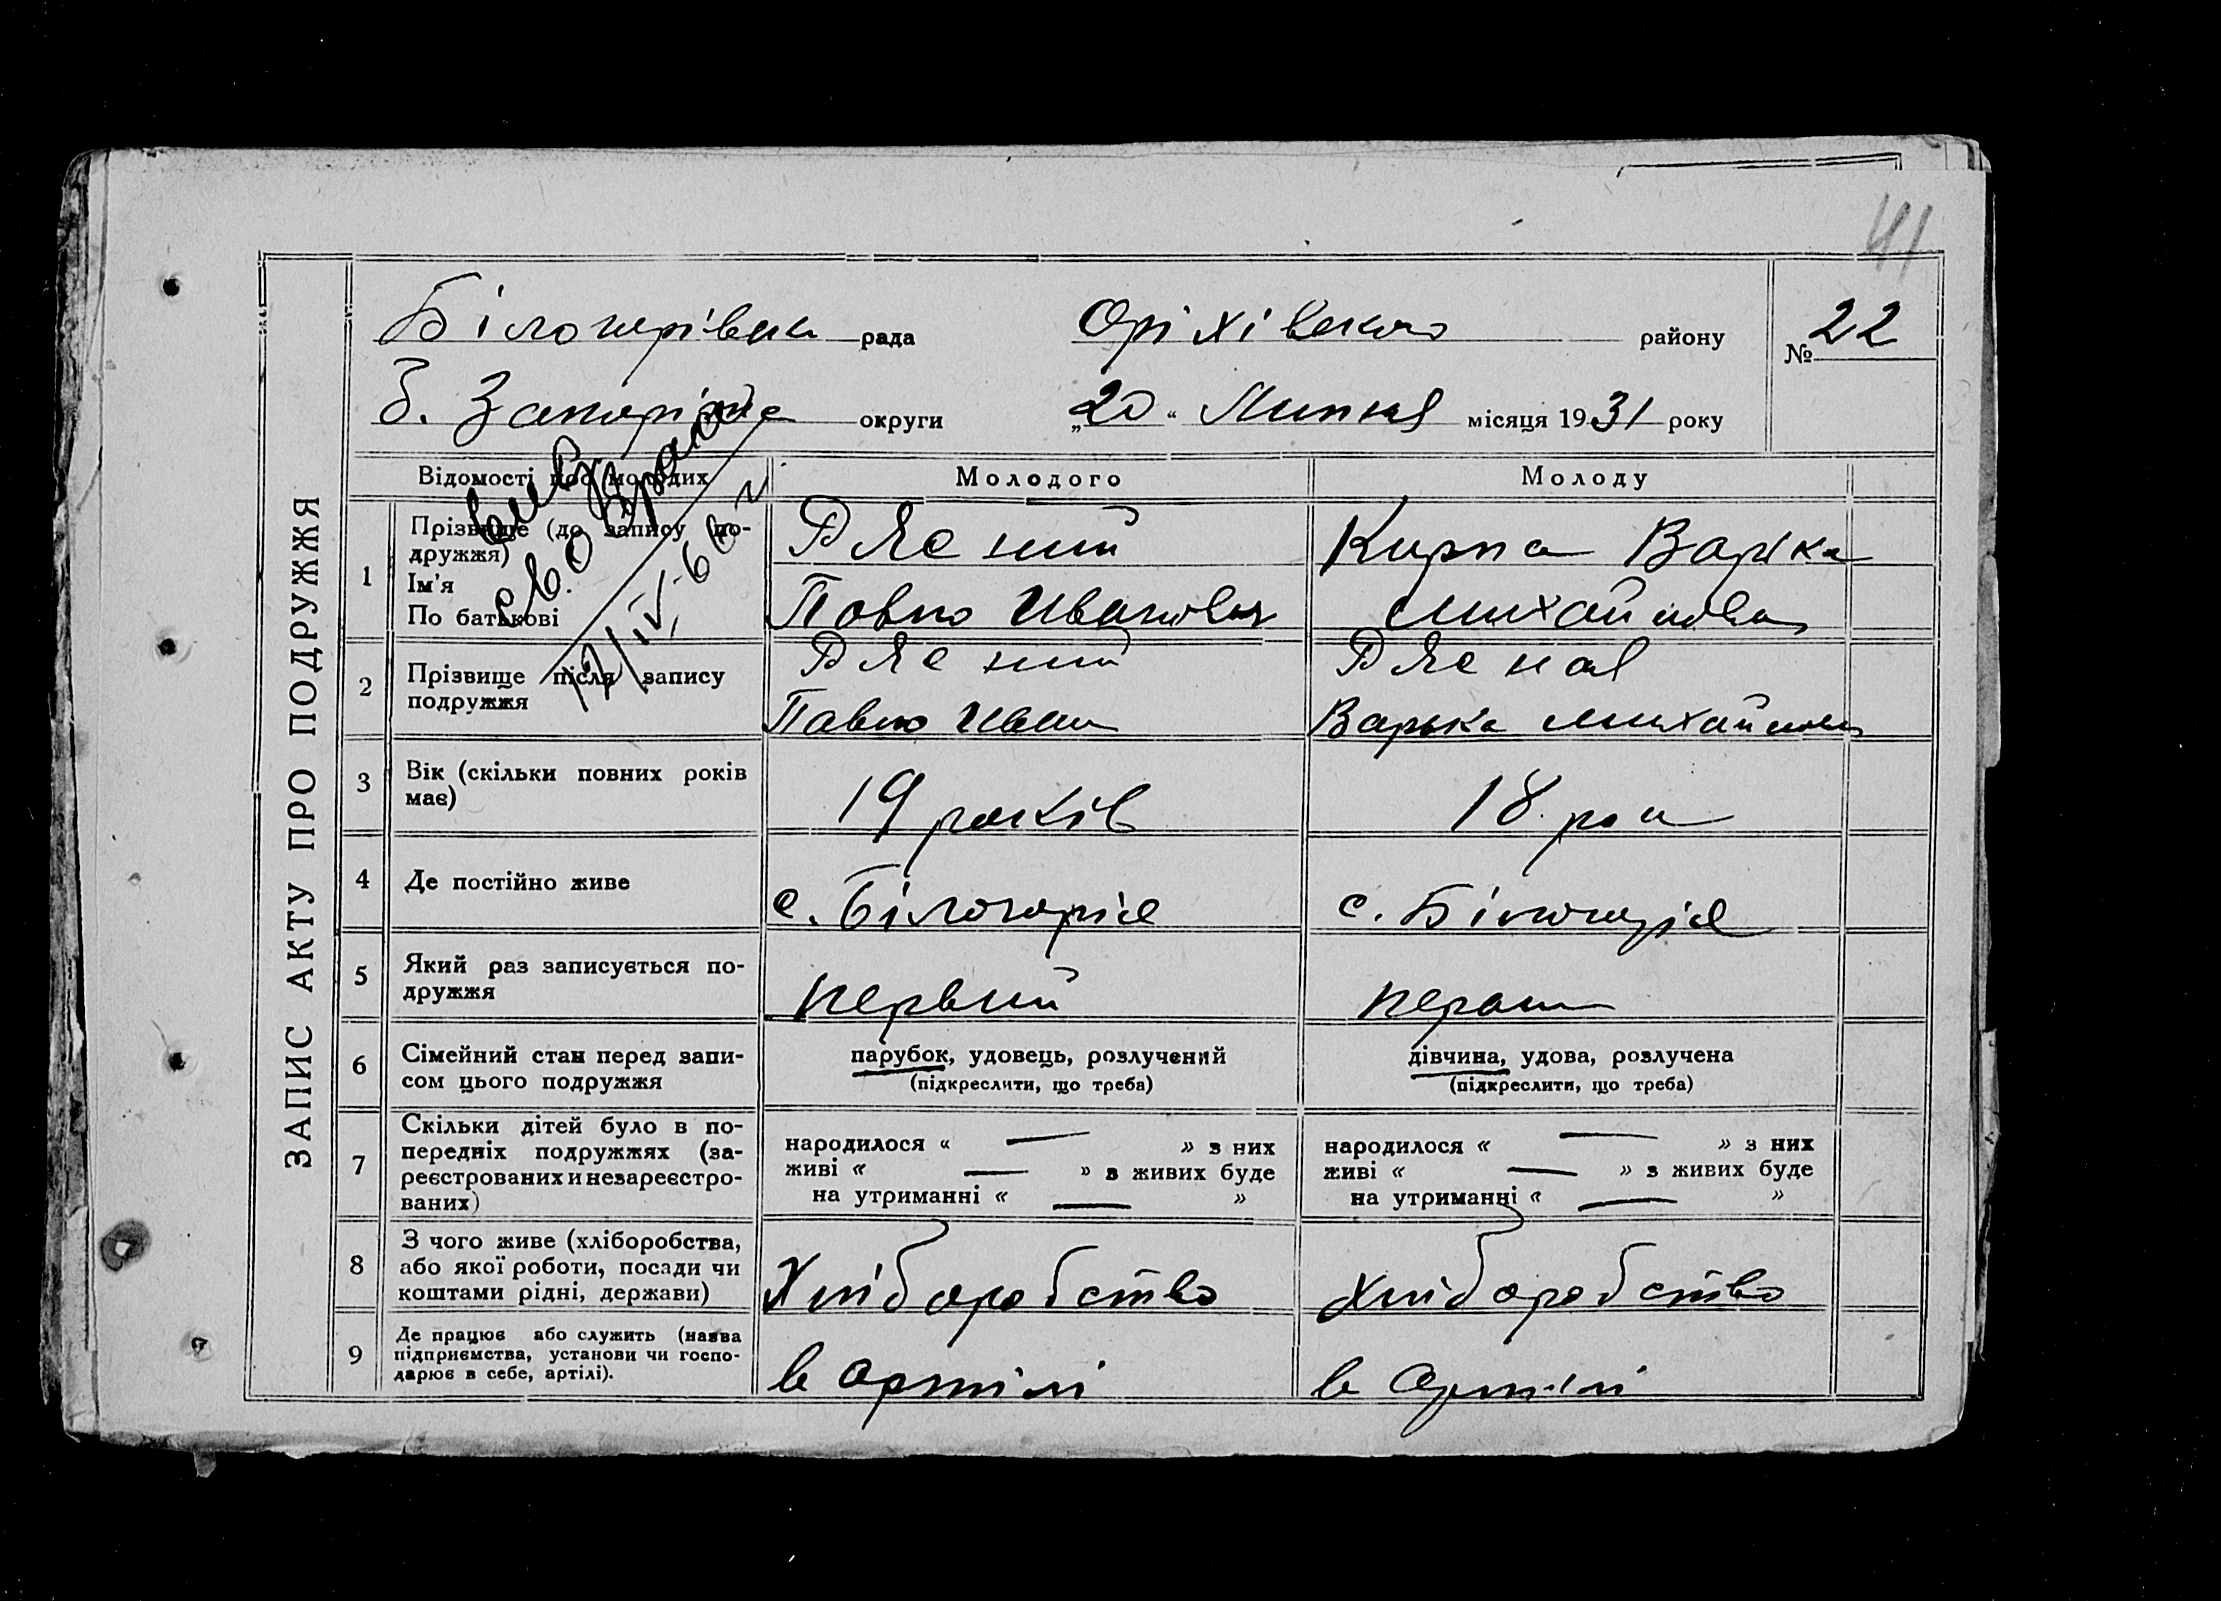 41
Білогорівська рада Оріхівського району № 22
З. Запоріжжя округи „20“ Липня місяця 1931 року
ЗАПИС АКТУ ПРО ПОДРУЖЖЯ
Відомості про молодих Молодого Молоду
св. о браке
12/IV-66 г
1 Прізвище (до запису по-
дружжя)
Ім'я
По батькові
Рясний
Павло Иванович
Кирпа Варка
Михайлова
2 Прізвище після запису
подружжя
Рясний
Павло Иван
Рясная
Варька Михайлов
3 Вік (скільки повних років
має)
19 років
18 рок
4 Де постійно живе
с. Білогоріє
с. Білогоріє
5 Який раз записується по-
дружжя
первий
перший
6 Сімейний стан перед запи-
сом цього подружжя
парубок, удовець, розлучений
(підкреслити, що треба)
дівчина, удова, розлучена
(підкреслити, що треба)
7 Скільки дітей було в по-
передніх подружжях (за-
реєстрованих и незареєстро-
ваних)
народилося « — » з них
живі « — » з живих буде
на утриманні « — »
народилося « — » з них
живі « — » з живих буде
на утриманні « — »
8 З чого живе (хліборобства,
або якої роботи, посади чи
коштами рідні, держави)
Хліборобство
Хліборобство
9 Де працює або служить (назва
підприємства, установи чи госпо-
дарює в себе, артілі).
в артілі
в артілі